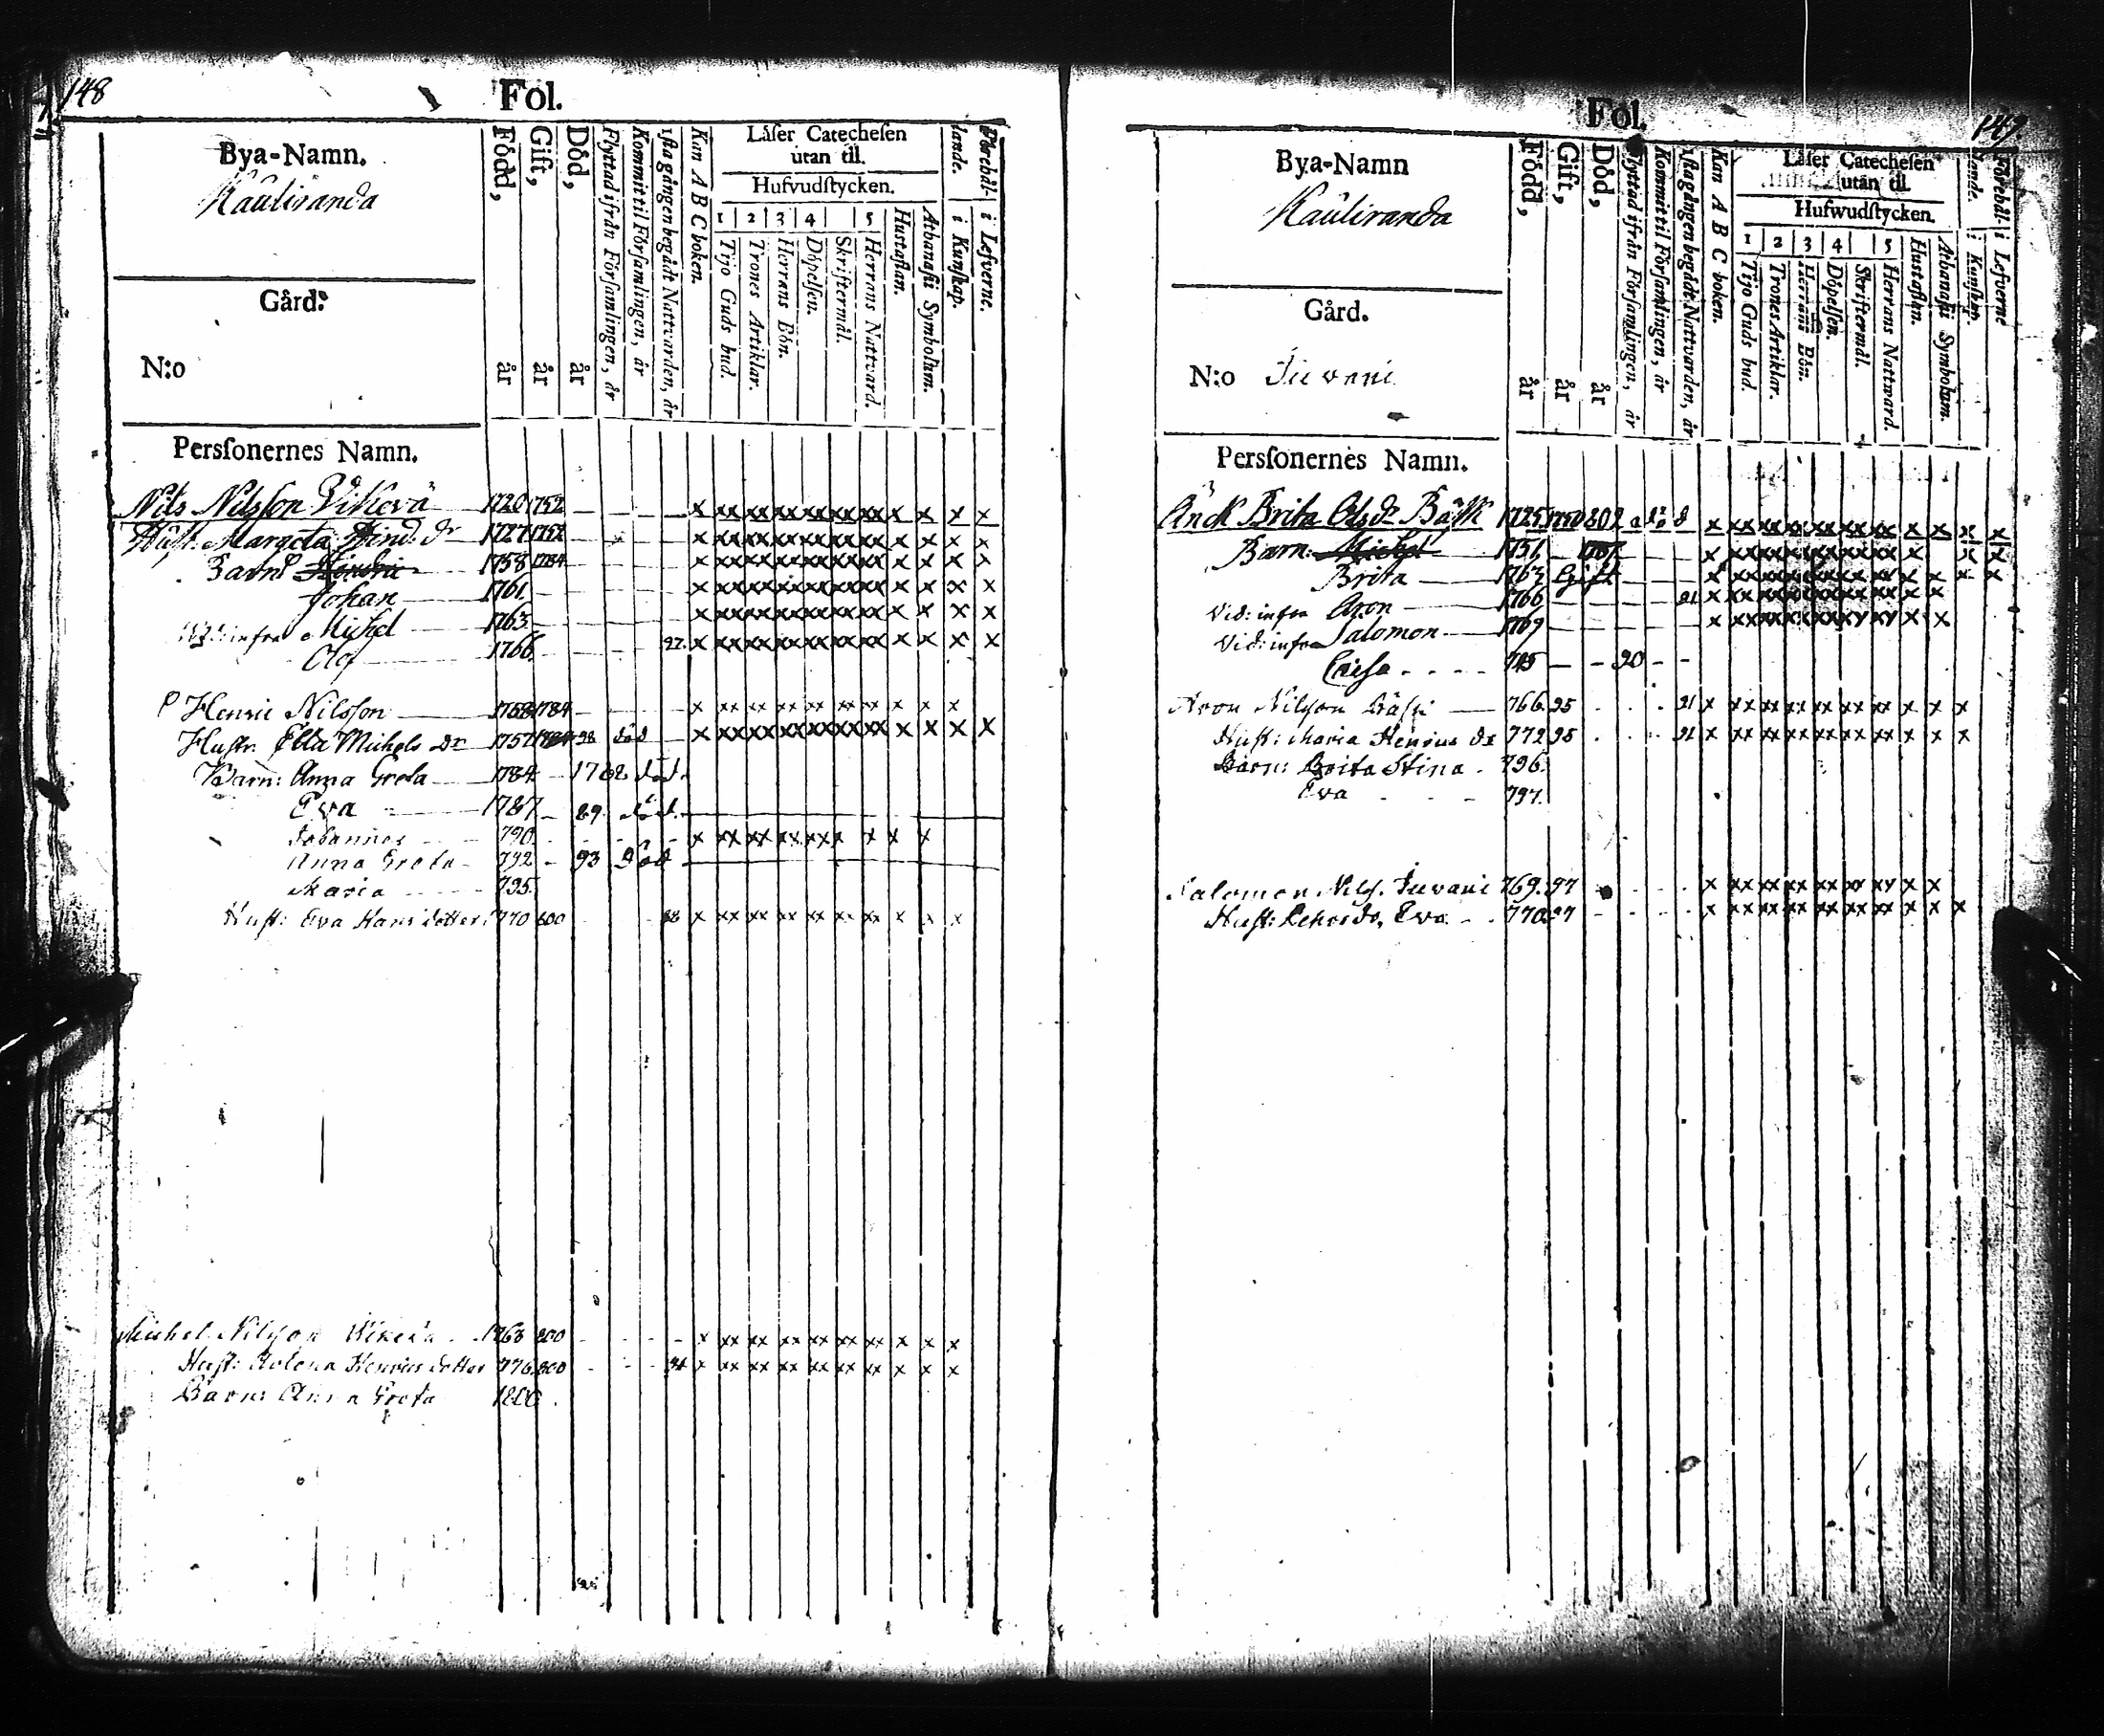 148
Fol.
Bya-Namn.
Kauliranda
Gård.
N:o
Född, år
Gift, år
Död, år
Flyttad ifrån Församlingen, år
Kommit til Församlingen, år
1sta gången begådt Nattvarden, år
Kan A B C boken.
Låser Catechesen utan til.
Hufvudstycken.
1 2 3 4 5
Tijo Guds bud.
Trones Artiklar.
Herrans Bön.
Döpelsen.
Skriftermål.
Herrans Nattvard.
Hustaflan.
Athanasii Symbolum.
Förehållande.
i Kunskap.
i Lefverne.
Persönernes Namn.
Nils Nilsson Vikevä 1720 1752 x xx xx xx xx xx xx x x x x
Hust. Margeta Hind. dr 1727 1752 x xx xx xx xx xx xx x x x x
Barn Henric 1758 1784 x xx xx xx xx xx xx x x x x
Johan 1761 x xx xx xx xx xx xx x x x x
Vid: infra Michel 1763 x xx xx xx xx xx xx x x x x
Olof 1766 92 x xx xx xx xx xx xx x x x x
Henric Nilsson 1758 1784 x xx xx xx xx xx xx x x x
Hustr. Ella Michels dr 1757 1784 98 död x xx xx xx xx xx xx x x x x
Barn: Anna Greta 1784 död.
Eva 1787 89 död.
Johannes 790 x xx xx xx xx x x x x
Anna Greta 792 93 Död
Maria 795
Hust: Eva Hans dotter 770 800 88 x xx xx xx xx xx xx x x x
Michel Nilsson Wikevä 1763 800 x xx xx xx xx xx xx x x x
Hust: Helena Henrics dotter 776 800 94 x xx xx xx xx xx xx x x x
Barn: Anna Greta 1800
Fol.
149.
Bya-Namn
Kauliranda
Gård.
N:o Juvani
Född, år
Gift, år
Död, år
Flyttad ifrån Församlingen, år
Kommit til Församlingen, år
1sta gången begådt Nattvarden, år
Kan A B C boken.
Låser Catechesen utan til.
Hufwudstycken.
1 2 3 4 5
Tijo Guds bud.
Trones Artiklar.
Herrans Bön.
Döpelsen.
Skriftermål.
Herrans Nattvard
Hustaflan.
Athanasii Symbolum.
Förehållande.
i Kunskap.
i Lefverne
Persönernes Namn.
Änck Brita Ols dr 1725 1750 802 död x xx xx xx xx xx xx x x x x
Barn: Michel 1751 x xx xx xx xx xx xx x x x
Brita 1763 Gift x xx xx xx xx xx xx x x x x
Vid: infra Aron 1766 91 x xx xx xx xx xx xx x x
Vid: infra Salomon 1769 x xx xx xx xx xx xx x x
Caisa 90
Aron Nilsson 766 95 91 x xx xx xx xx xx xx x x x
Hust: Maria Henrics dr 772 95 91 x xx xx xx xx xx xx x x x
Barn: Brita Stina 796.
Eva 797.
Salomon Nils. Juvani 769. 97 x xx xx xx xx xx xx x x
Hust: Eva 770 97 x xx xx xx xx xx xx x x x